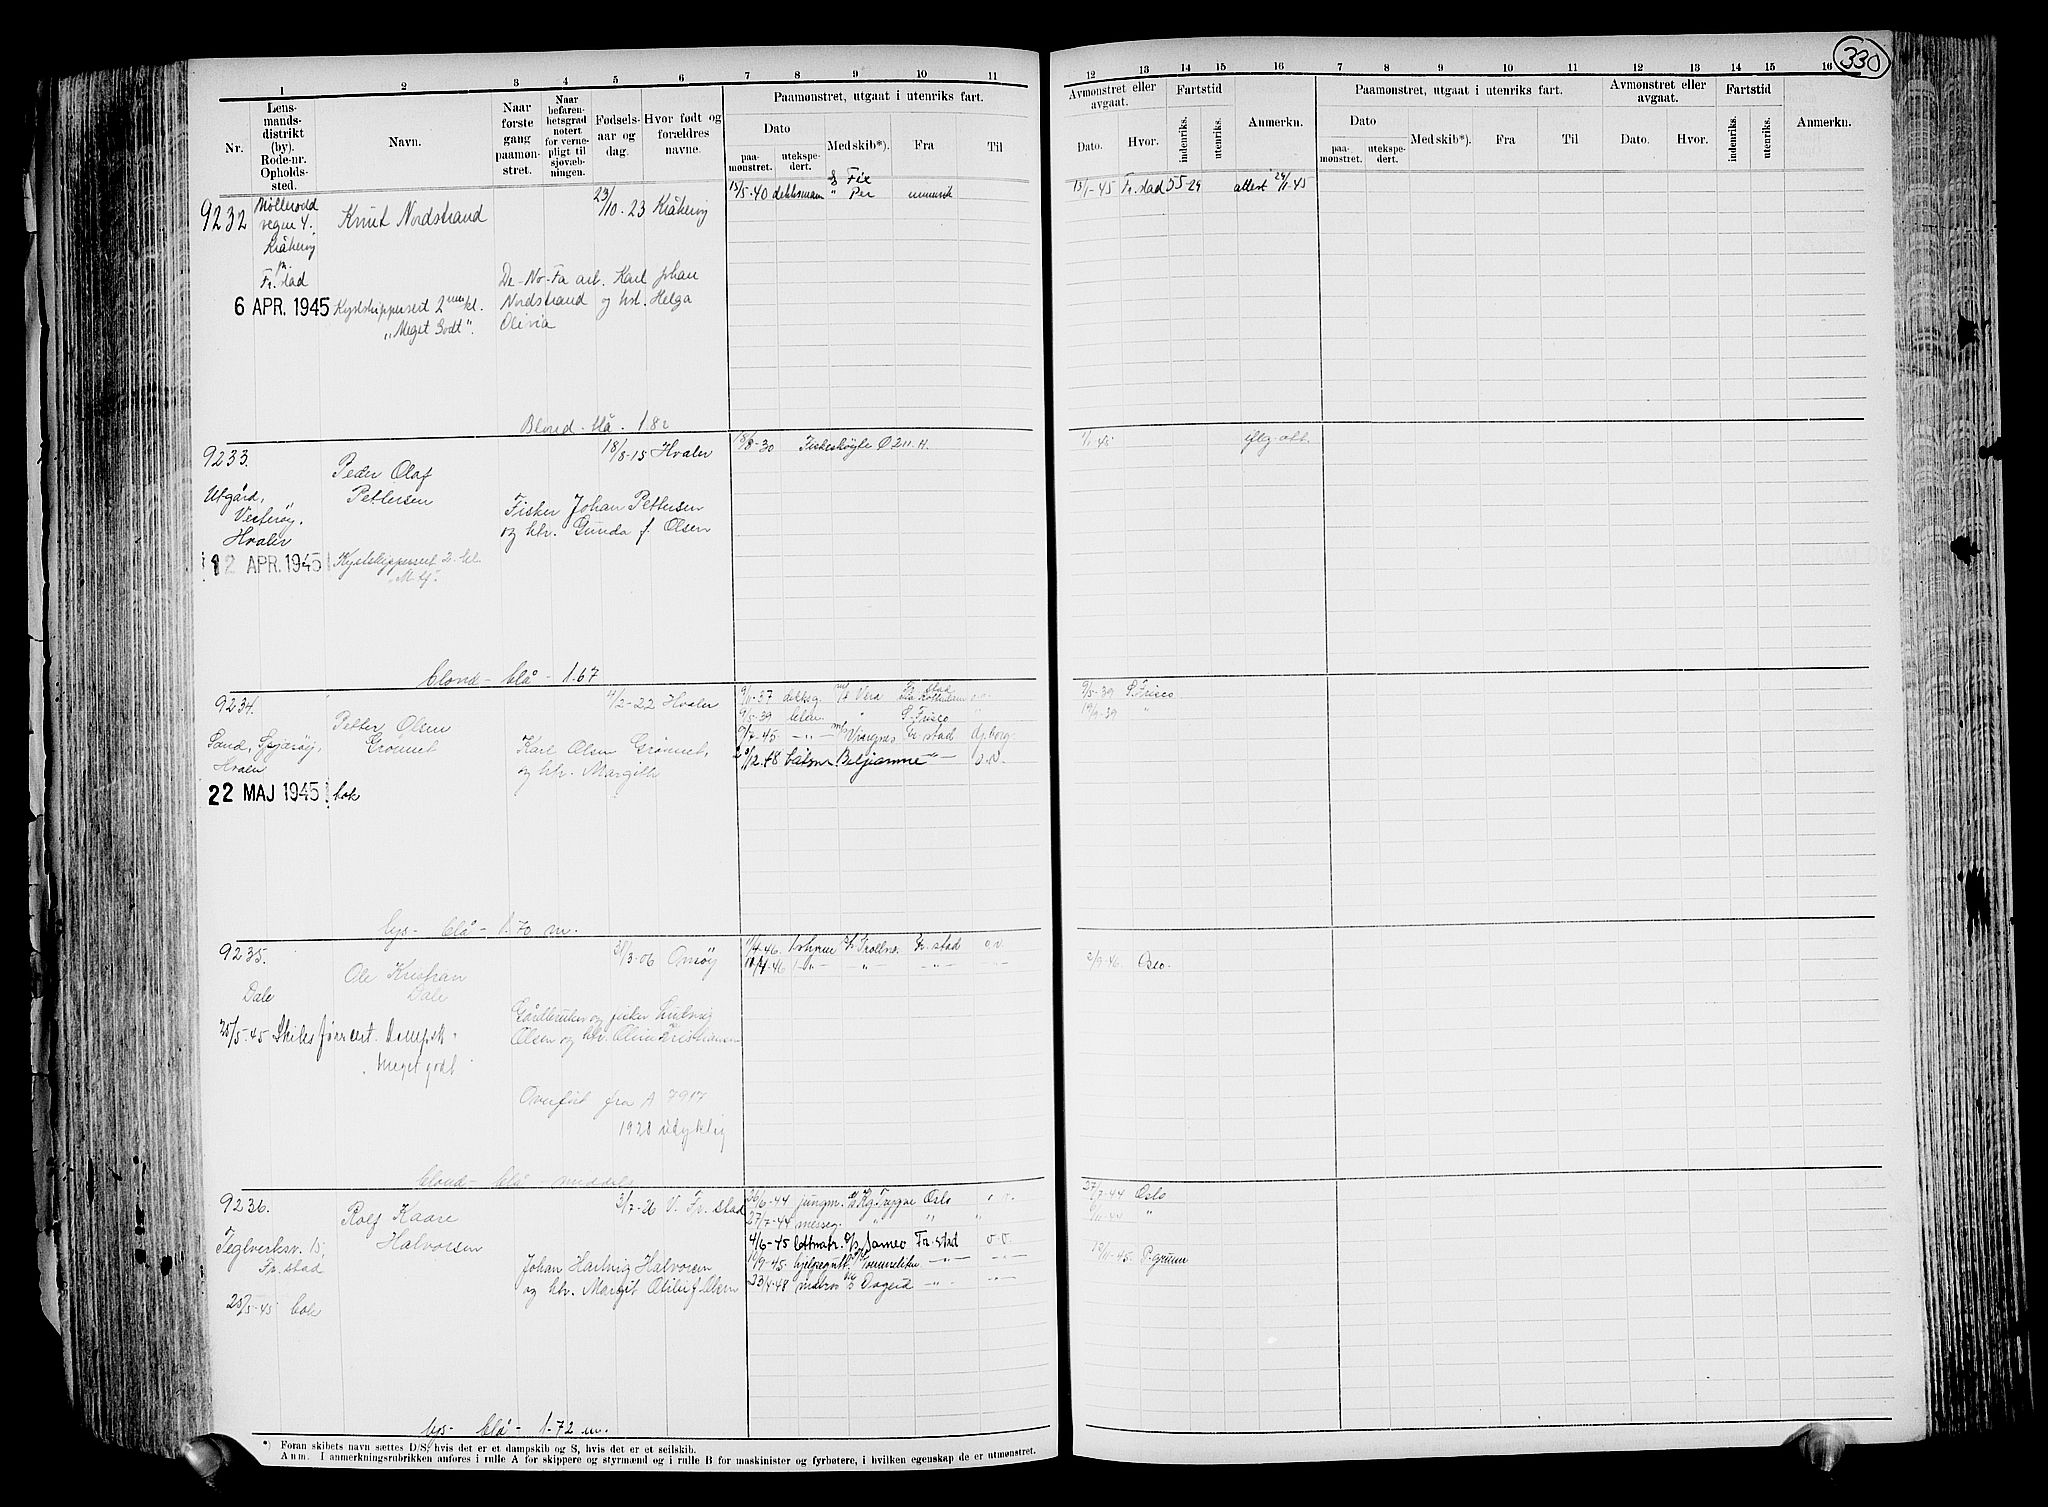 330
1 2 3 4 5 6 7 8 9 10 11
Nr.
Lens-
mands-
distrikt
(by).
Rode-nr.
Opholds-
sted.
Navn.
Naar
første
gang
paamøn-
stret.
Naar
befaren-
hetsgrad
notert
for verne-
pligt til
sjøvæb-
ningen.
Fødsels-
aar og
dag.
Hvor født og
forældres
navne.
Paamønstret, utgaat i utenriks fart.
Dato
paa-
mønstret.
utekspe-
dert.
Med skib*).
Fra
Til
12 13 14 15 16 7 8 9 10 11 12 13 14 15 16
Avmønstret eller
avgaat.
Dato.
Hvor.
Fartstid
indenriks.
utenriks.
Anmerkn.
Paamønstret, utgaat i utenriks fart.
Dato
paa-
mønstret.
utekspe-
dert.
Med skib*).
Fra
Til
Avmønstret eller
avgaat.
Dato.
Hvor.
Fartstid
indenriks.
utenriks.
Anmerkn.
9232
vegne 4.
Kråkerøy
Fr.stad
6 APR. 1945
Knut Nordstrand
Kystskippersert 2nen kl.
"Meget Godt".
23/10-23 Kråkerøy
De-No-Fa arb. Karl Johan
Nordstrand og hst. Helga
Olivia
Blond - blå - 1.82
15/5-40 dekksmann
" Per
15/1-45 Fr.stad 55-29 attest 29/1-45
9233.
Utgård,
Vesterøy,
Hvaler
12 APR. 1945
Peder Olaf
Pettersen
Kystskippersert 2. kl.
M. G.
18/8-15 Hvaler
Fisker Johan Pettersen
og htr. Gunda f. Olsen
blond - blå - 1.67
Fiskeskøyte Ø 211. H.
1/1 45 iflg. att.
9234.
Sand, Spjærøy,
Hvaler
22 MAJ 1945 bok
Petter Olsen
Grønnet
4/2-22 Hvaler
Karl Olsen Grønnet,
og htr. Margith
lys - blå - 1.70 m.
9/11-37 dekksg. Vera Fr.stad
Rotterdam o.v.
9/5-39 " S. Frisco "
7-45 Fr.stad
12.48 båtsm. " o.v.
9/5-39 S. Frisco
19/9-39 "
9235.
Dale
25/5-45
Ole Kristian
Dale
Dampsk.
Meget godt
31/3-06 Onsøy
Gårdbruker og fisker Ludvig
Olsen og htr. Oline Kristiansen
Overført fra A 7917
1928 udyktig
blond - blå - middels
1/4-46 Fr.stad o.v.
4-46 " "
2/9-46. Oslo.
9236.
Teglverksv. 15,
Fr.stad
25/5-45 bok
Rolf Kaare
Halvorsen
31/7-26 V. Fr.stad
Johan Hartvig Halvorsen
og htr. Margit Otilie f. Olsen
lys - blå - 1.72 m.
26/6-44 jungm. Kg. Trygve Oslo o.v.
27/7-44 messeg. " " "
4/6-45 Fr.stad o.v.
9-45. hjelpegutt
23/4-48
27/7-44 Oslo
"
10/11-45. P.grunn
*) Foran skibets navn sættes D/S, hvis det er et dampskib og S, hvis det er et seilskib.
Anm. I anmerkningsrubrikken anføres i rulle A for skippere og styrmænd og i rulle B for maskinister og fyrbøtere, i hvilken egenskap de er utmønstret.